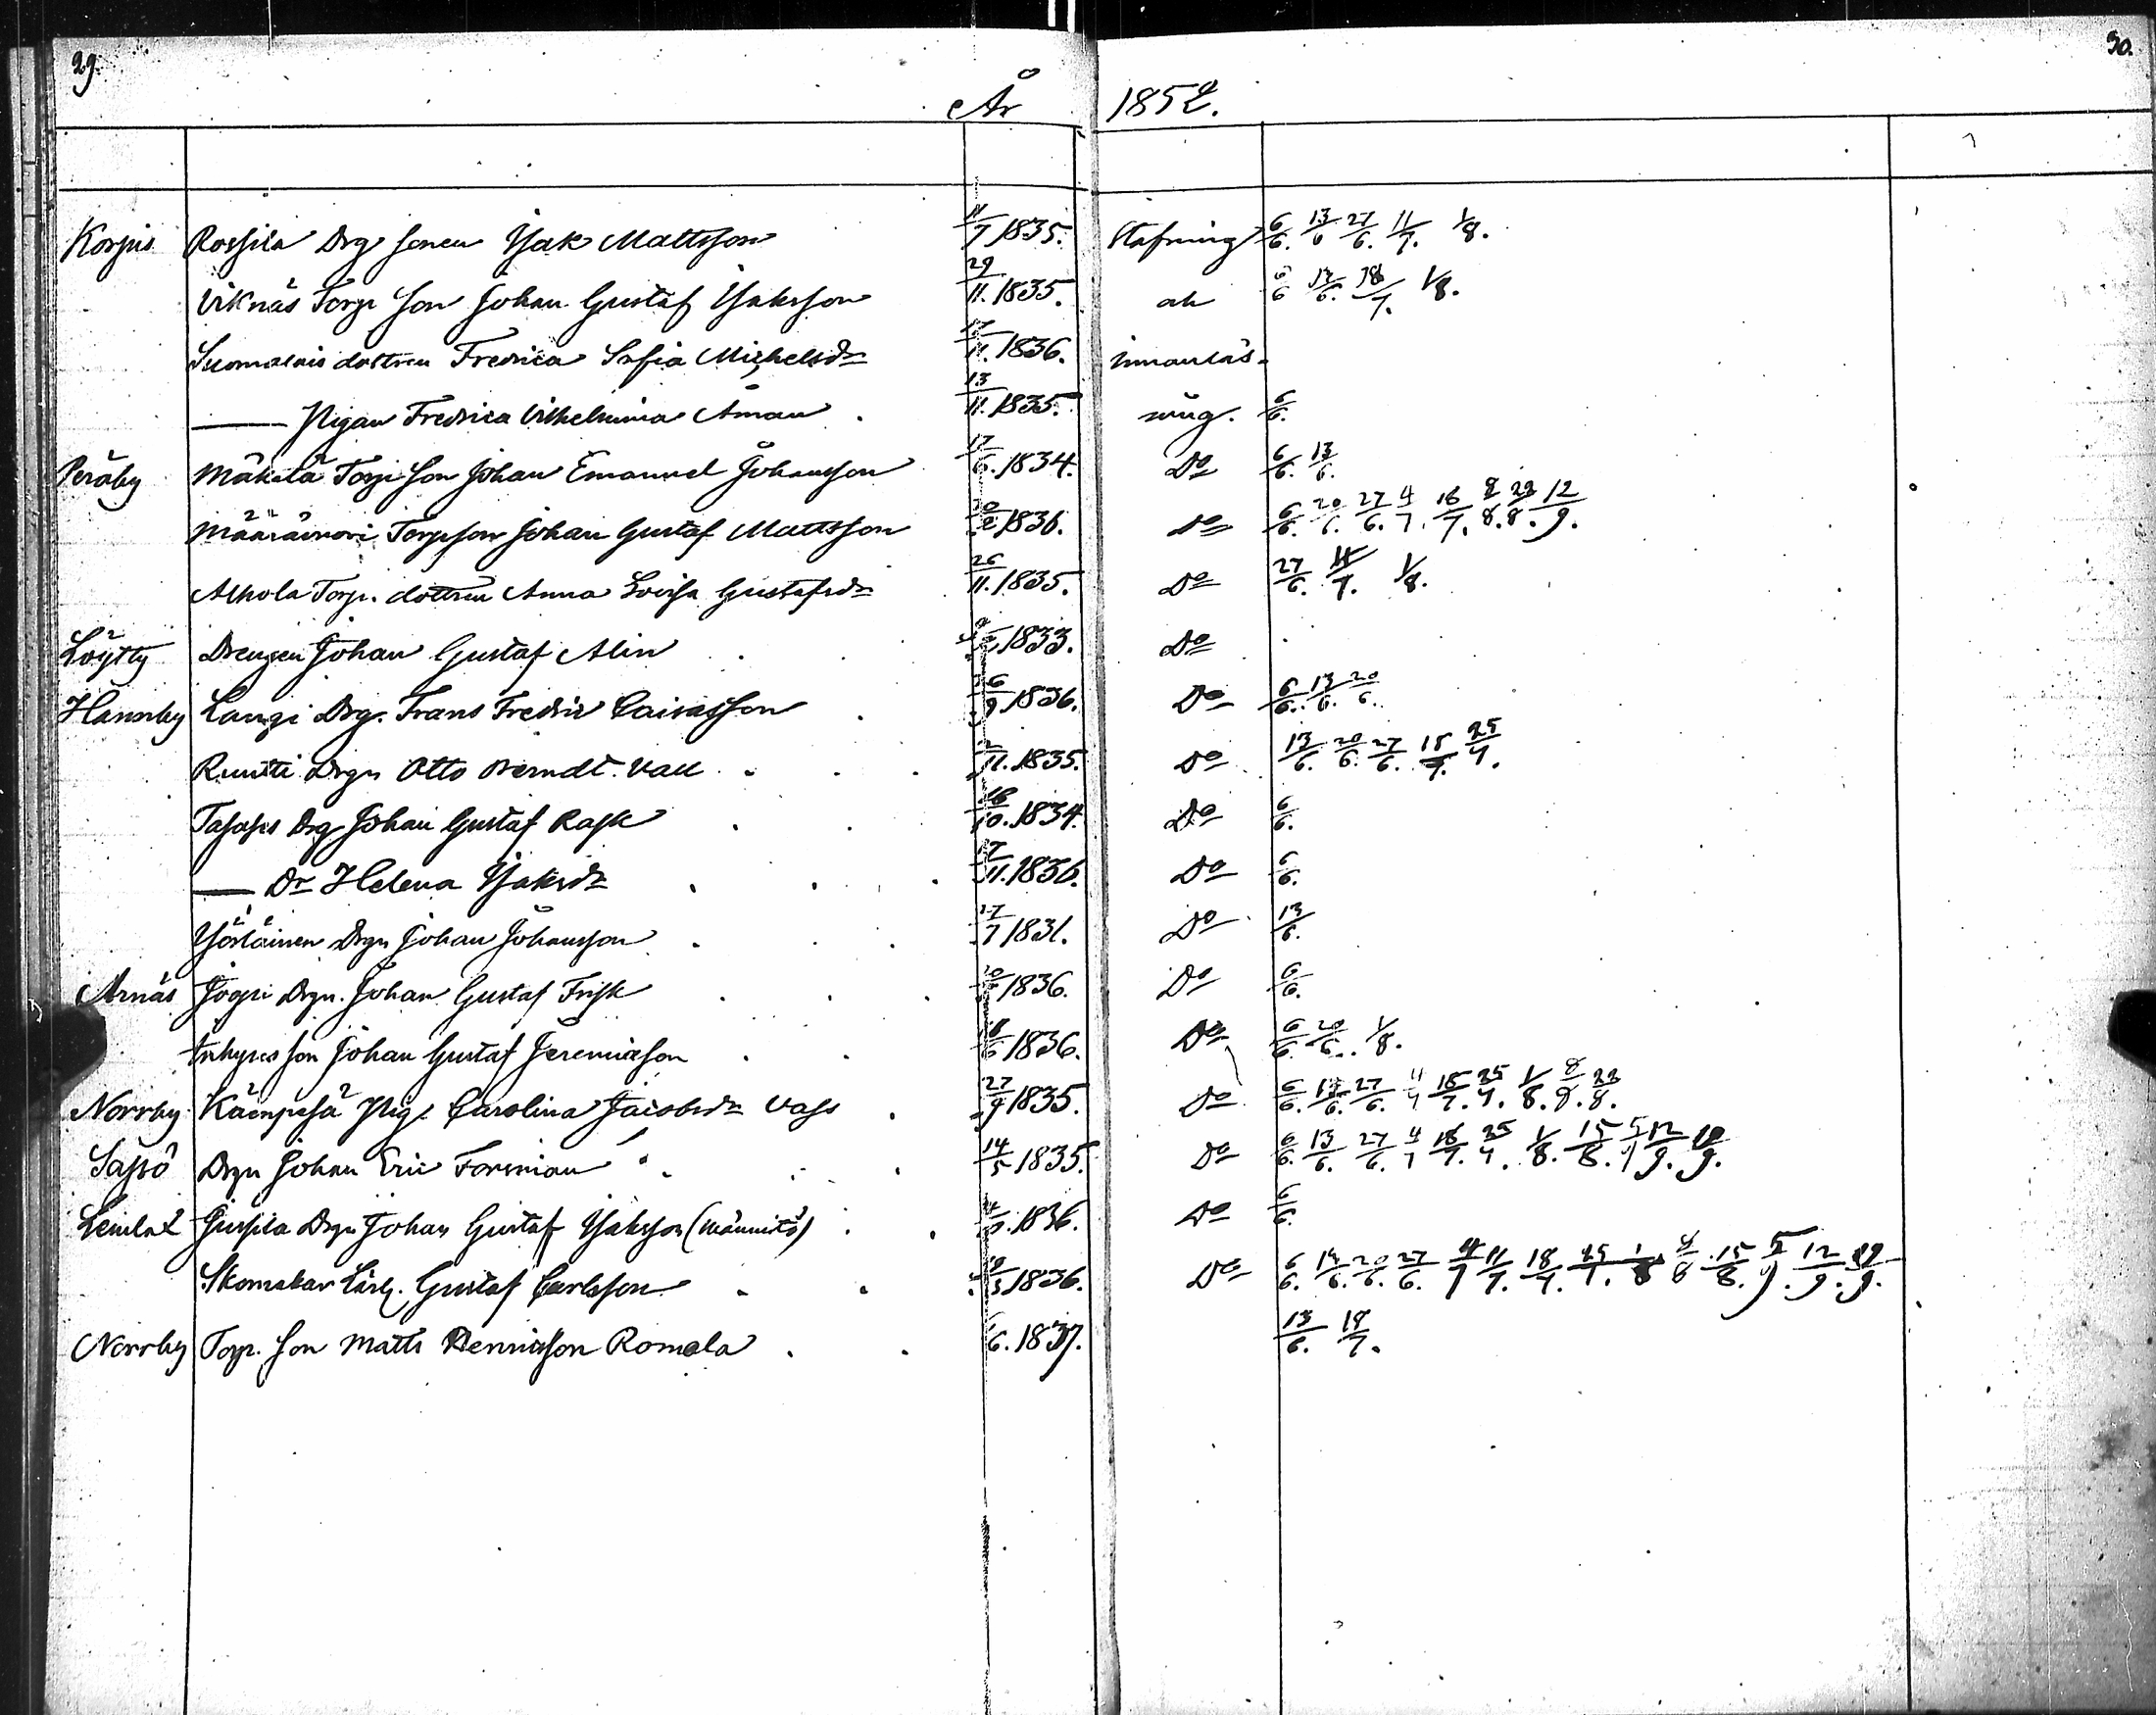 29. 30.
År 1852.
Korpis Rossila Drg sonen Isak Mattsson 11/7 1835. Stafning 6/6. 13/6 27/6. 11/7. 1/8.
Viknäs Torp Son Johan Gustaf Isaksson 29/11. 1835. ock 6/6 13/6. 18/7. 1/8.
Suomalais dottren Fredrica Sofia Michelsdr 17/11. 1836. innanläs-
— Pigan Fredrica Vilhelmina Åman 13/11. 1835. ning. 6/6.
Peräby Mäkelä Torp Son Johan Emanuel Johansson 17/6. 1834. Do 6/6. 13/6.
Torpson Johan Gustaf Mattsson 1836. Do 6/6. 20/6. 27/6. 4/7. 18/7. 8/8. 22/8. 12/9.
Alhola Torp. dottren Anna Lovisa Gustafsdr 26/11. 1835. Do 27/6. 11/7. 1/8.
Löytty Drengen Johan Gustaf Alin 1833. Do
Hannby Laupi Drg. Frans Fredric Caisasson 26/9 1836. Do 6/6. 13/6. 20/6.
Ruusti Drgn Otto Berndt Vall 2/11. 1835. Do 13/6. 20/6. 27/6. 18/7. 25/7.
Drg Johan Gustaf Rask 16/10. 1834. Do 6/6.
— Dr Helena Isaksdr 17/11. 1836. Do 6/6.
Drgn Johan Johansson 27/7 1831. Do 13/6.
Arnäs Joopi Drgn. Johan Gustaf Frisk 1836. Do 6/6.
Inhyses son Johan Gustaf Jeremiasson 1836. Do 6/6. 20/6. 1/8.
Norrby Kämpesä Pig. Carolina Jacobsdr Vass 27/9 1835. Do 6/6. 13/6. 27/6. 4/7 18/7. 25/7. 1/8. 8/8. 22/8.
Sassö Drgn Johan Eric Forsman 14/5 1835. Do 6/6. 13/6. 27/6. 4/7 18/7. 25/7. 1/8. 15/8. 5/9 12/9. 19/9.
Lemlat Jussila Drgn Johan Gustaf Isaksson (Männistö) 1836. Do 6/6.
Skomakar Lärl. Gustaf Carlsson 1836. Do 6/6. 13/6. 20/6. 27/6. 4/7 11/7. 18/7. 25/7. 1/8 8/8 15/8. 5/9. 12/9. 19/9.
Norrby Torp. Son Matts Henricsson Romola 6. 1837. 13/6. 18/7.